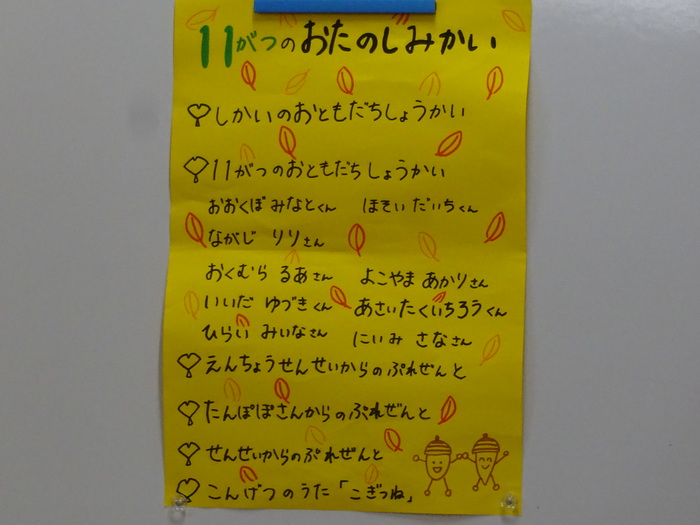 11がつのおたのしみかい
しかいのおともだちしょうかい
11がつのおともだちしょうかい
おおくぼ みなとくん ほそい だいちくん
ながじ りりさん
おくむら るあさん よこやま あかりさん
いいだ ゆづきくん あさいたくいちろうくん
ひらい みいなさん にいみ さなさん
えんちょうせんせいからのぷれぜんと
たんぽぽさんからのぷれぜんと
せんせいからのぷれぜんと
こんげつのうた「こぎつね」